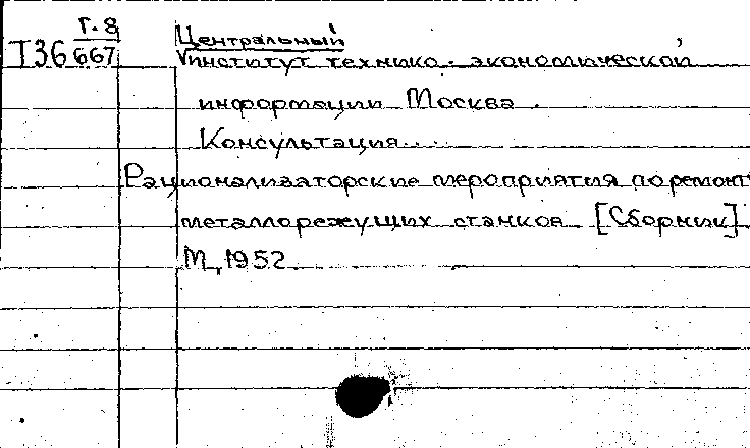 Г. 8
Т36 667
Центральный
институт технико-экономической
информации Москва.
Консультация...
Рационализаторские мероприятия по ремонт
металлорежущих станков [Сборник]
М, 1952